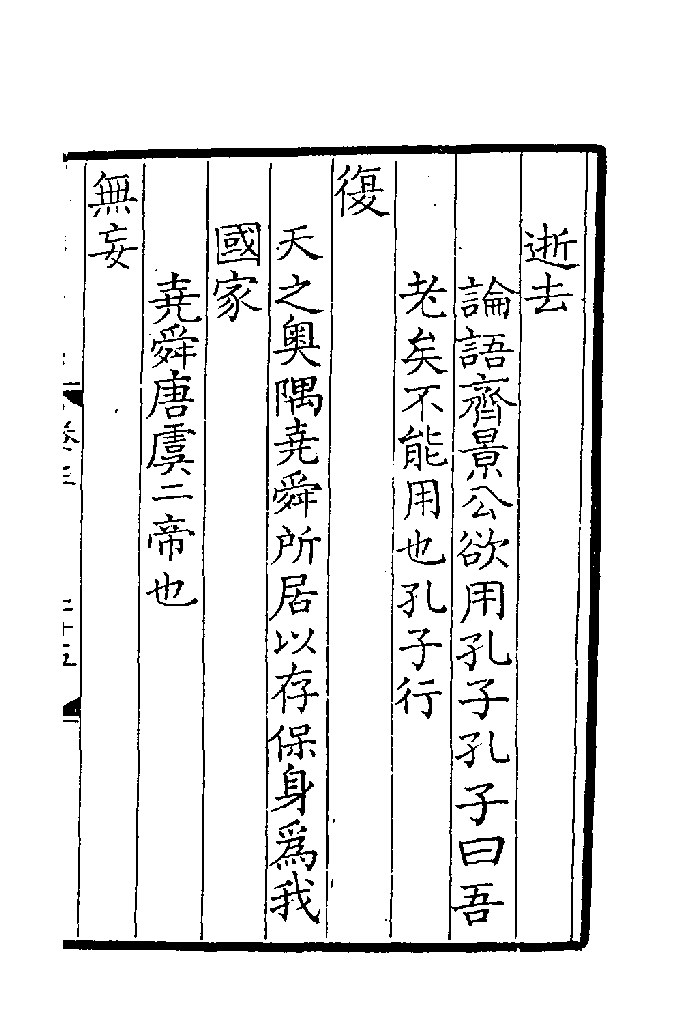 逝去
論語齊景公欲用孔子孔子曰吾
老矣不能用也孔子行
復
天之奥隅堯舜所居以存保身爲我
國家
堯舜唐虞二帝也
無妄